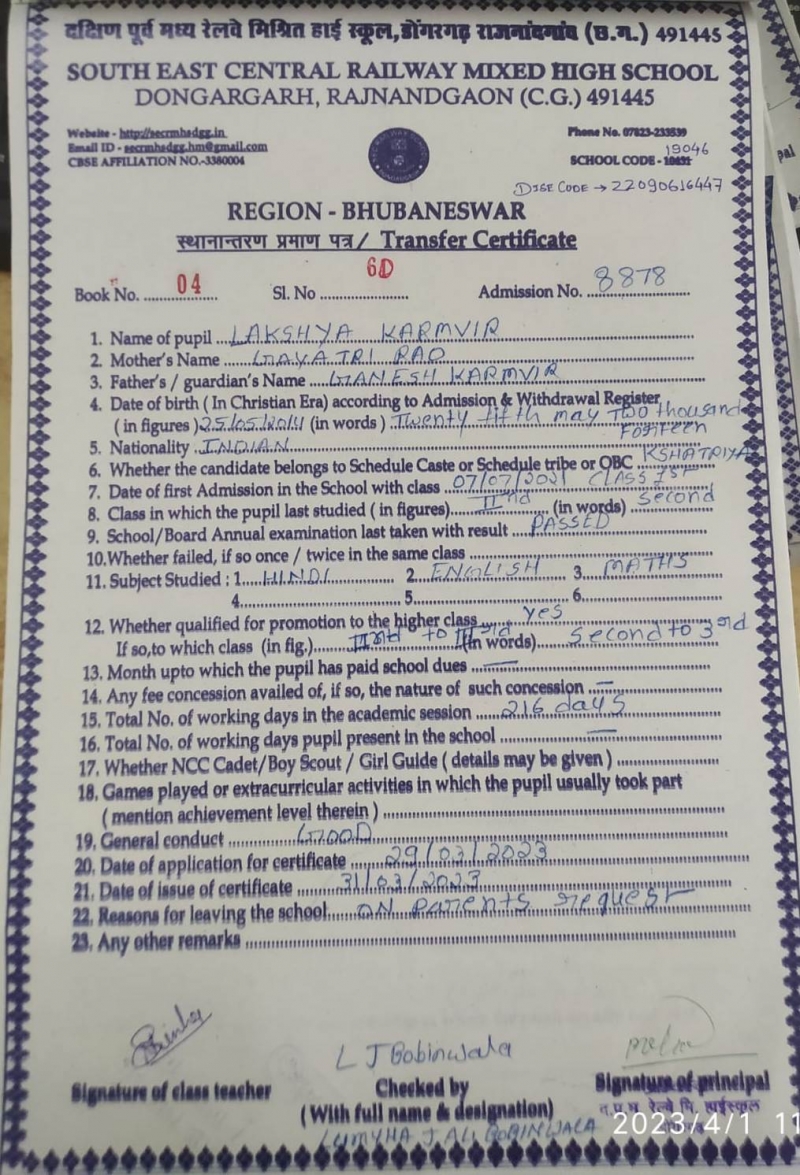 दक्षिण पूर्व मध्य रेलवे मिश्रित हाई स्कूल, डोंगरगढ़ राजनांदगांव (छ.ग.) 491445
SOUTH EAST CENTRAL RAILWAY MIXED HIGH SCHOOL
DONGARGARH, RAJNANDGAON (C.G.) 491445
Website - http://secrmhsdgg.in
Phone No. 07823-233539
Email ID - secrmhsdgg.hm@gmail.com
19046
CBSE AFFILIATION NO.-3380004
SCHOOL CODE -
DISE CODE → 22090616447
REGION - BHUBANESWAR
स्थानान्तरण प्रमाण पत्र / Transfer Certificate
Book No. 04 Sl. No 60 Admission No. 8878
1. Name of pupil LAKSHYA KARMVIR
2. Mother's Name GAYATRI RAO
3. Father's / guardian's Name GANESH KARMVIR
4. Date of birth ( In Christian Era) according to Admission & Withdrawal Register
( in figures ) 25/05/2014 (in words ) Twenty fifth may Two thousand
Forteen
5. Nationality INDIAN
6. Whether the candidate belongs to Schedule Caste or Schedule tribe or OBC KSHATRIYA
7. Date of first Admission in the School with class 07/07/2021 CLASS 1st
8. Class in which the pupil last studied ( in figures) IInd (in words) Second
9. School/Board Annual examination last taken with result PASSED
10. Whether failed, if so once / twice in the same class
11. Subject Studied : 1. HINDI 2. ENGLISH 3. MATHS
4. 5. 6.
12. Whether qualified for promotion to the higher class yes
If so,to which class (in fig.) IInd to IIIrd (In words) Second to 3rd
13. Month upto which the pupil has paid school dues —
14. Any fee concession availed of, if so, the nature of such concession —
15. Total No. of working days in the academic session 216 days
16. Total No. of working days pupil present in the school —
17. Whether NCC Cadet/Boy Scout / Girl Guide ( details may be given )
18. Games played or extracurricular activities in which the pupil usually took part
( mention achievement level therein )
19. General conduct GOOD
20. Date of application for certificate 29/03/2023
21. Date of issue of certificate 31/03/2023
22. Reasons for leaving the school ON Parents request
23. Any other remarks
L J Bobinwala
Signature of class teacher
Checked by
(With full name & designation)
Signature of principal
रेल्वे मि. हाईस्कूल
J ALI BOBINWALA
2023/4/1 11